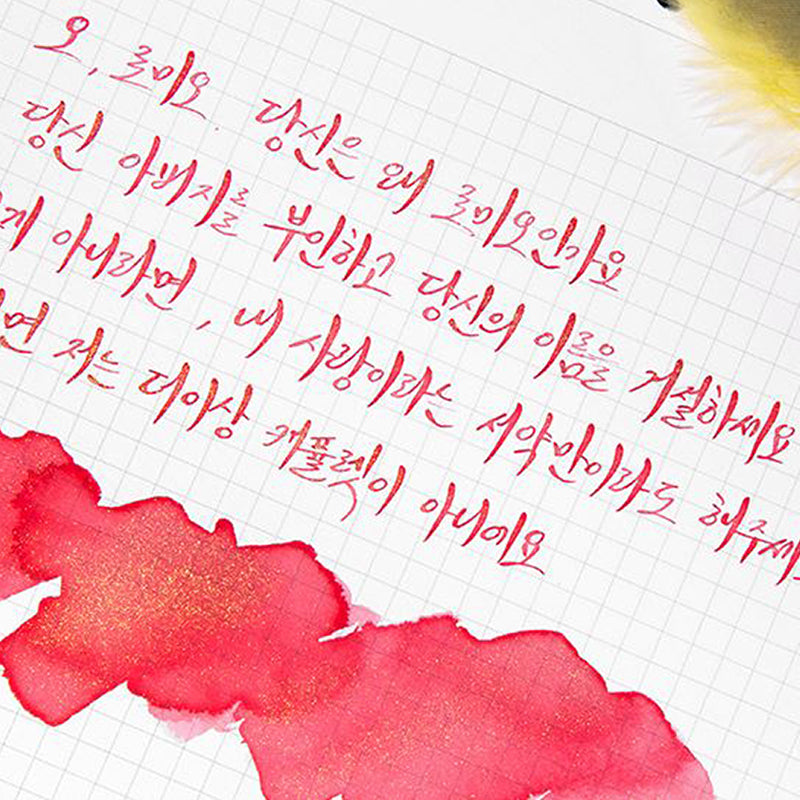 오, 로미오. 당신은 왜 로미오인가요
당신 아버지를 부인하고 당신의 이름을 거절하세요
아니라면, 내 사랑이라는 서약만이라도 해주세
저는 더이상 캐플렛이 아니에요